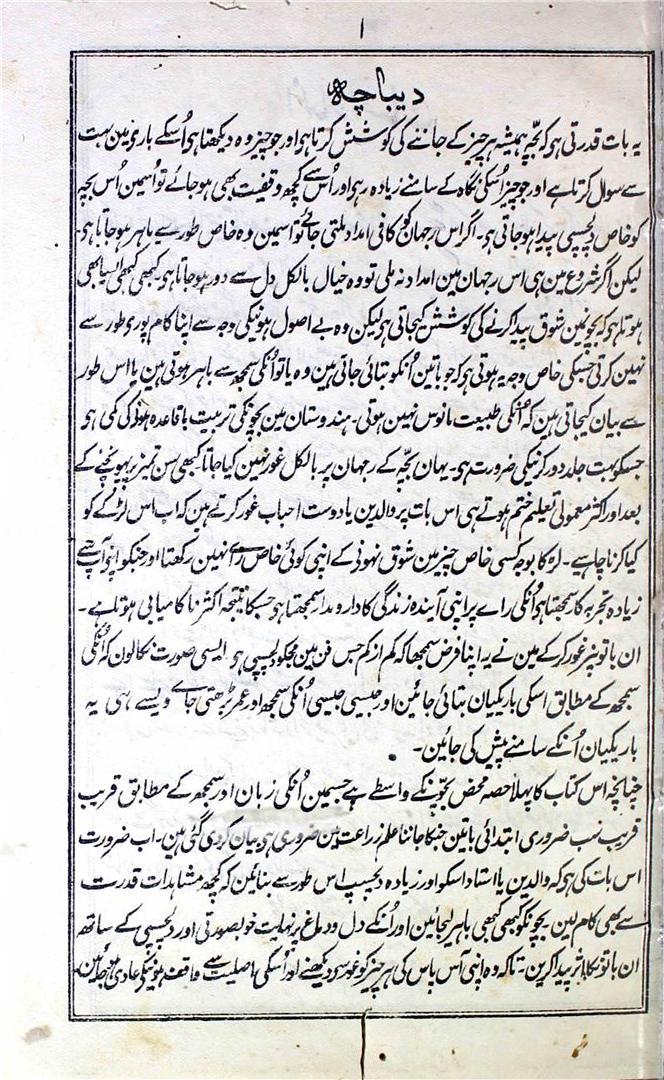 ۱
دیباچہ
یہ بات قدرتی ہو کہ بچّہ ہمیشہ ہر چیز کے جاننے کی کوشش کرتا ہو اور جو چیز وہ دیکھتا ہو اُسکے بارے مین بہت
سے سوال کرتا ہے اور جو چیز اُسکی نگاہ کے سامنے زیادہ رہو اور اُس سے کچھ وقفیت بھی ہو جائے تو اُسمین اُس بچہ
کو خاص دلچسپی پیدا ہو جاتی ہو۔ اگر اس رجہان کو کافی امداد ملتی جائے تو اسمین وہ خاص طور سے ماہر ہو جاتا ہو۔
لیکن اگر شروع مین ہی اس رجہان مین امداد نہ ملی تو وہ خیال بالکل دل سے دور ہو جاتا ہو کبھی کبھی ایسا بھی
ہوتا ہو کہ بچونمین شوق پیدا کرنے کی کوشش کیجاتی ہو لیکن وہ بے اصول ہونیکی وجہ سے اپنا کام پوری طور سے
نہین کرتی جسکی خاص وجہ یہ ہوتی ہو کہ جو باتین اُنکو بتائی جاتی ہین وہ یا تو اُنکی سمجھ سے باہر ہوتی ہین یا اس طور
سے بیان کیجاتی ہین کہ اُنکی طبیعت مانوس نہین ہوتی۔ ہندوستان مین بچونکی تربیت باقاعدہ ہونیکی کمی ہو
جسکو بہت جلد دور کرنیکی ضرورت ہو۔ یہان بچّہ کے رجہان پر بالکل غور نہین کیا جاتا کبھی سن تمیز پر پہونچنے کے
بعد اور اکثر معمولی تعلیم ختم ہوتے ہی اس بات پر والدین یا دوست احباب غور کرتے ہین کہ اب اس لڑکے کو
کیا کرنا چاہیے۔ لڑکا بوجہ کسی خاص چیز مین شوق نہونے کے اپنی کوئی خاص رائے نہین رکھتا اور جنکو اپنے آپ سے
زیادہ تجربہ کا سمجھتا ہو اُنکی رائے پر اپنی آیندہ زندگی کا دارومدار سمجھتا ہو جسکا نتیجہ اکثر ناکامیابی ہوتا ہے۔
ان باتونپر غور کر کے مین نے یہ اپنا فرض سمجھا کہ کم از کم جس فن مین مجکو دلچسپی ہو ایسی صورت نکالون کہ اُنکی
سمجھ کے مطابق اسکی باریکیان بتائی جائین اور جیسی جیسی اُنکی سمجھ اور عمر بڑھتی جائے ویسے ہی یہ
باریکیان اُنکے سامنے پیش کی جائین۔
چنانچہ اس کتاب کا پہلا حصہ محض بچّونکے واسطے ہے جسمین اُنکی زبان اور سمجھ کے مطابق قریب
قریب سب ضروری ابتدائی باتین جنکا جاننا علم زراعت مین ضروری ہو بیان کر دی گئی ہین۔ اب ضرورت
اس بات کی ہو کہ والدین یا استاد اسکو اور زیادہ دلچسپ اس طور سے بنائین کہ کچھ مشاہدات قدرت
سے بھی کام لین بچونکو کبھی کبھی باہر لیجائین اور اُنکے دل و دماغ پر نہایت خوبصورتی اور دلچسپی کے ساتھ
ان باتونکا اثر پیدا کرین۔ تاکہ وہ اپنی آس پاس کی ہر چیز کو غور سے دیکھنے اور اُسکی اصلیت سے واقف ہونیکے عادی ہو جائین